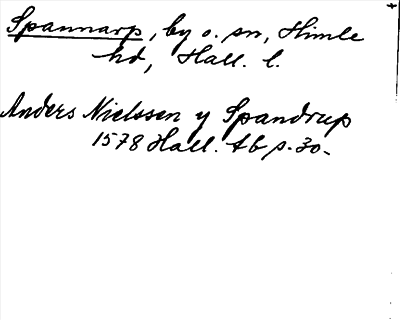 Spannarp, by o. sn, Himle
hd, Hall. l.
Anders Nielssen y Spandrup
1578 Hall. tb s. 30.